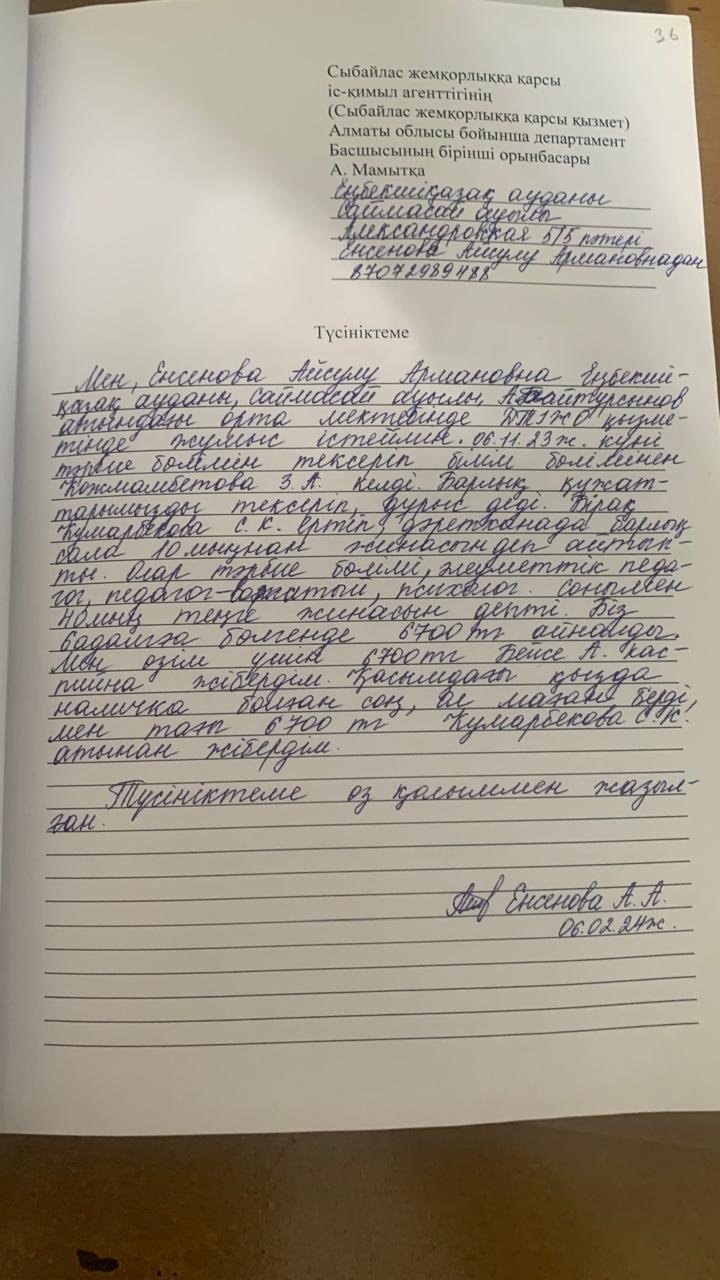 36
Сыбайлас жемқорлыққа қарсы
іс-қимыл агенттігінің
(Сыбайлас жемқорлыққа қарсы қызмет)
Алматы облысы бойынша департамент
Басшысының бірінші орынбасары
А. Мамытқа
Еңбекшіқазақ ауданы
Саймасай ауылы
Александровская 5/5 пәтері
Енсенова Айсулу Армановнадан
87072989488
Түсініктеме
Мен, Енсенова Айсулу Армановна Еңбекші-
қазақ ауданы, Саймасай ауылы, А.Байтурсынов
атындағы орта мектебінде ДТІЖО қызме-
тінде жұмыс істеймін. 06.11.23 ж. күні
тәрбие бөлімін тексеріп білім бөлімінен
Кожмамбетова З.А. келді. Барлық құжат-
тарымызды тексеріп, дұрыс деді. Бірақ
Кумарбекова С.К. ертіп, дәретханада барлық
сала 10 мыңнан жинасын деп айтып-
ты. Олар тәрбие бөлімі, әлеуметтік педа-
гог, педагог-вожатый, психолог. Сонымен
40 мың теңге жинасын депті. Біз
6 адамға бөлгенде 6700 тг айналды.
Мен өзім үшін 6700 тг Бейсе А. кас-
пийна жібердім. Қасымдағы қызда
наличка болған соң, ол маған берді,
мен тағы 6700 тг Кумарбекова С.К.
атынан жібердім.
Түсініктеме өз қолыммен жазыл-
ған.
Енсенова А.А.
06.02.24ж.